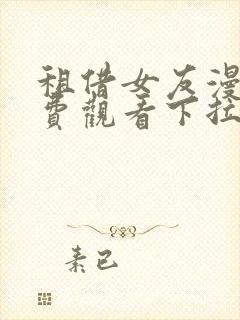 租借女友漫
費觀看下拉
素已